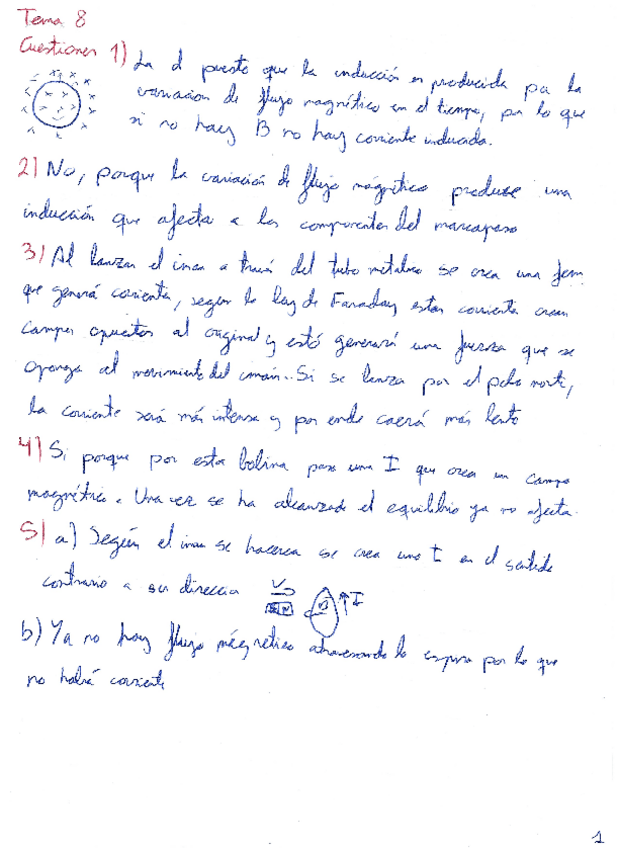 Tema 8
Cuestiones 1) La d puesto que la inducción es producida por la
variacion de flujo magnético en el tiempo, por lo que
si no hay B no hay corriente inducida.
2) No, porque la variación de flujo mágnetico produce una
inducción que afecta a los componentes del marcapaso
3) Al lanzar el iman a través del tubo metalico se crea una fem
que generá corrientes, segun la ley de Faraday estas corrientes crean
campos opuestos al original y estó generará una fuerza que se
oponga al movimiento del imán. Si se lanza por el polo norte,
la corriente será más intensa y por ende caerá más lento
4) Si porque por esta bobina pasa una I que crea un campo
magnético. Una vez se ha alcanzado el equilibrio ya no afecta.
5) a) Según el iman se hacerca se crea una I en el sentido
contrario a su direccia
V
N
B
I
b) Ya no hay flujo mágnetico atravesando la espira por lo que
no habrá corriente
1